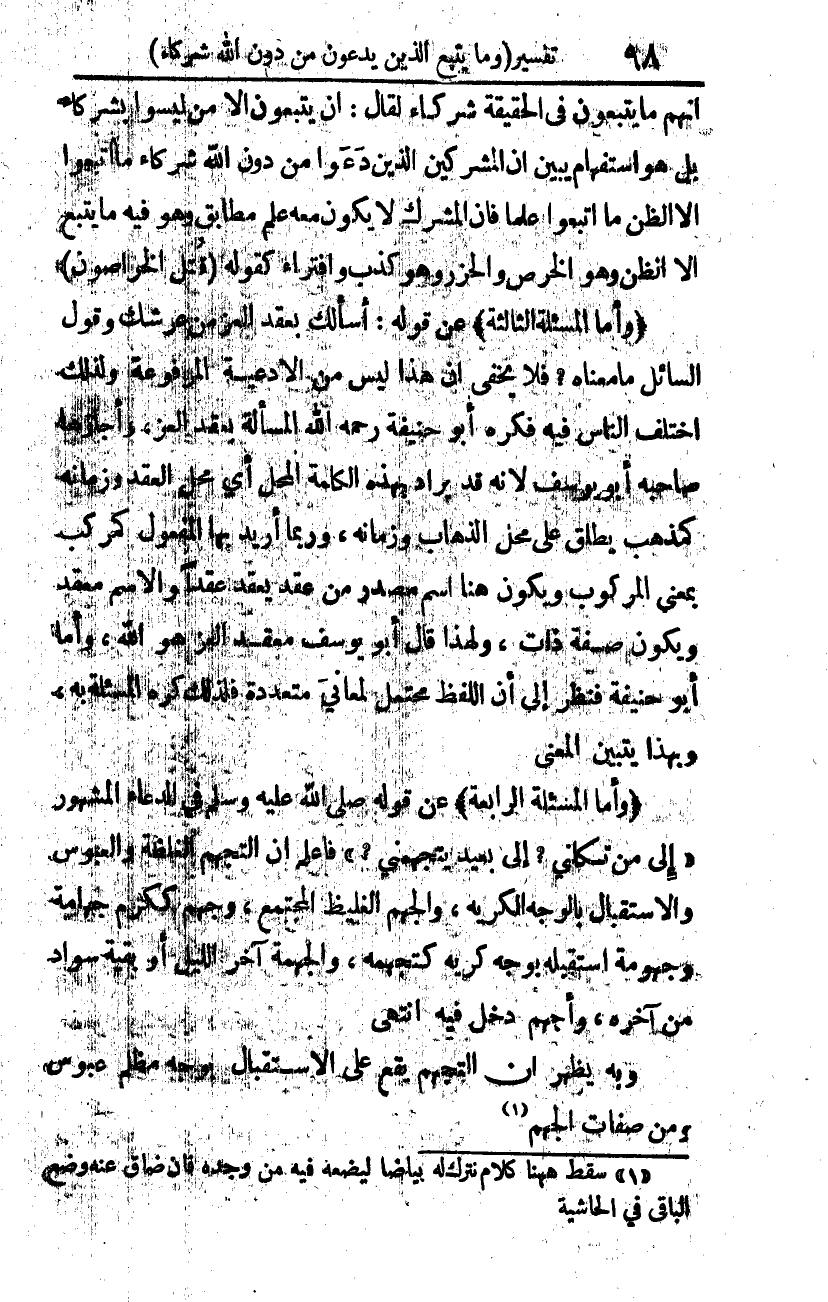 ٩٨ تفسير (وما يتبع الذين يدعون من دون الله شركاء)
انهم ما يتبعون في الحقيقة شركاء لقال : ان يتبعون الا من ليسوا بشركاء
بل هو استفهام يبين ان المشركين الذين دَعَوا من دون الله شركاء ما اتبعوا
الا الظن ما اتبعوا علما فان المشرك لا يكون معه علم مطابق وهو فيه ما يتبع
الا الظن وهو الخرص والحزر وهو كذب وافتراء كقوله (قُتل الخراصون)
﴿وأما المسئلة الثالثة﴾ عن قوله : أسألك بعقد العز من عرشك وقول
السائل ما معناه ؟ فلا يخفى ان هذا ليس من الادعية المرفوعة ولذلك
اختلف الناس فيه فكره أبو حنيفة رحمه الله المسألة بعقد العز ، وأجازها
صاحبه أبو يوسف لانه قد يراد بهذه الكلمة المحل أي محل العقد وزمانه
كمذهب يطلق على محل الذهاب وزمانه ، وربما أريد بها المفعول كمركب
بمعنى المركوب ويكون هنا اسم مصدر من عقد يعقد عقداً والاسم معقد
ويكون صفة ذات ، ولهذا قال أبو يوسف معقد العز هو الله ، وأما
أبو حنيفة فنظر إلى أن اللفظ محتمل لمعانيَ متعددة فلذلك كره المسئلة به ،
وبهذا يتبين المعنى
﴿وأما المسئلة الرابعة﴾ عن قوله صلى الله عليه وسلم في الدعاء المشهور
« إلى من تكلني ؟ إلى بعيد يتجهمني ؟ » فاعلم ان التجهم الغلظة والعبوس
والاستقبال بالوجه الكريه ، والجهم الغليظ المجتمع ، وجهم ككرم جهامة
وجهومة استقبله بوجه كريه كتجهمه ، والجهمة آخر الليل أو بقية سواد
من آخره ، وأجهم دخل فيه انتهى
وبه يظهر ان التجهم يقع على الاستقبال بوجه مظلم عبوس
ومن صفات الجهم (١)
«١» سقط ههنا كلام نترك له بياضا ليضعه فيه من وجده فان ضاق عنه وضع
الباقي في الحاشية